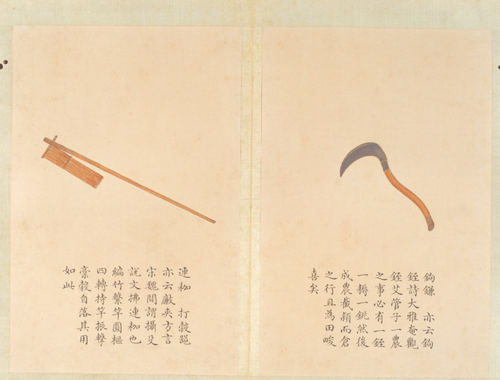 鉤鐮 亦云鉤
銍詩大雅奄觀
銍艾管子一農
之事必有一銍
一耨一銚然後
成農截穎而倉
之行且為田畯
喜矣
連枷 打穀
亦云 方言
宋魏間謂攝殳
說文拂連枷也
編竹繫竿圓樞
四轉持竿振擊
稾穀自落其用
如此